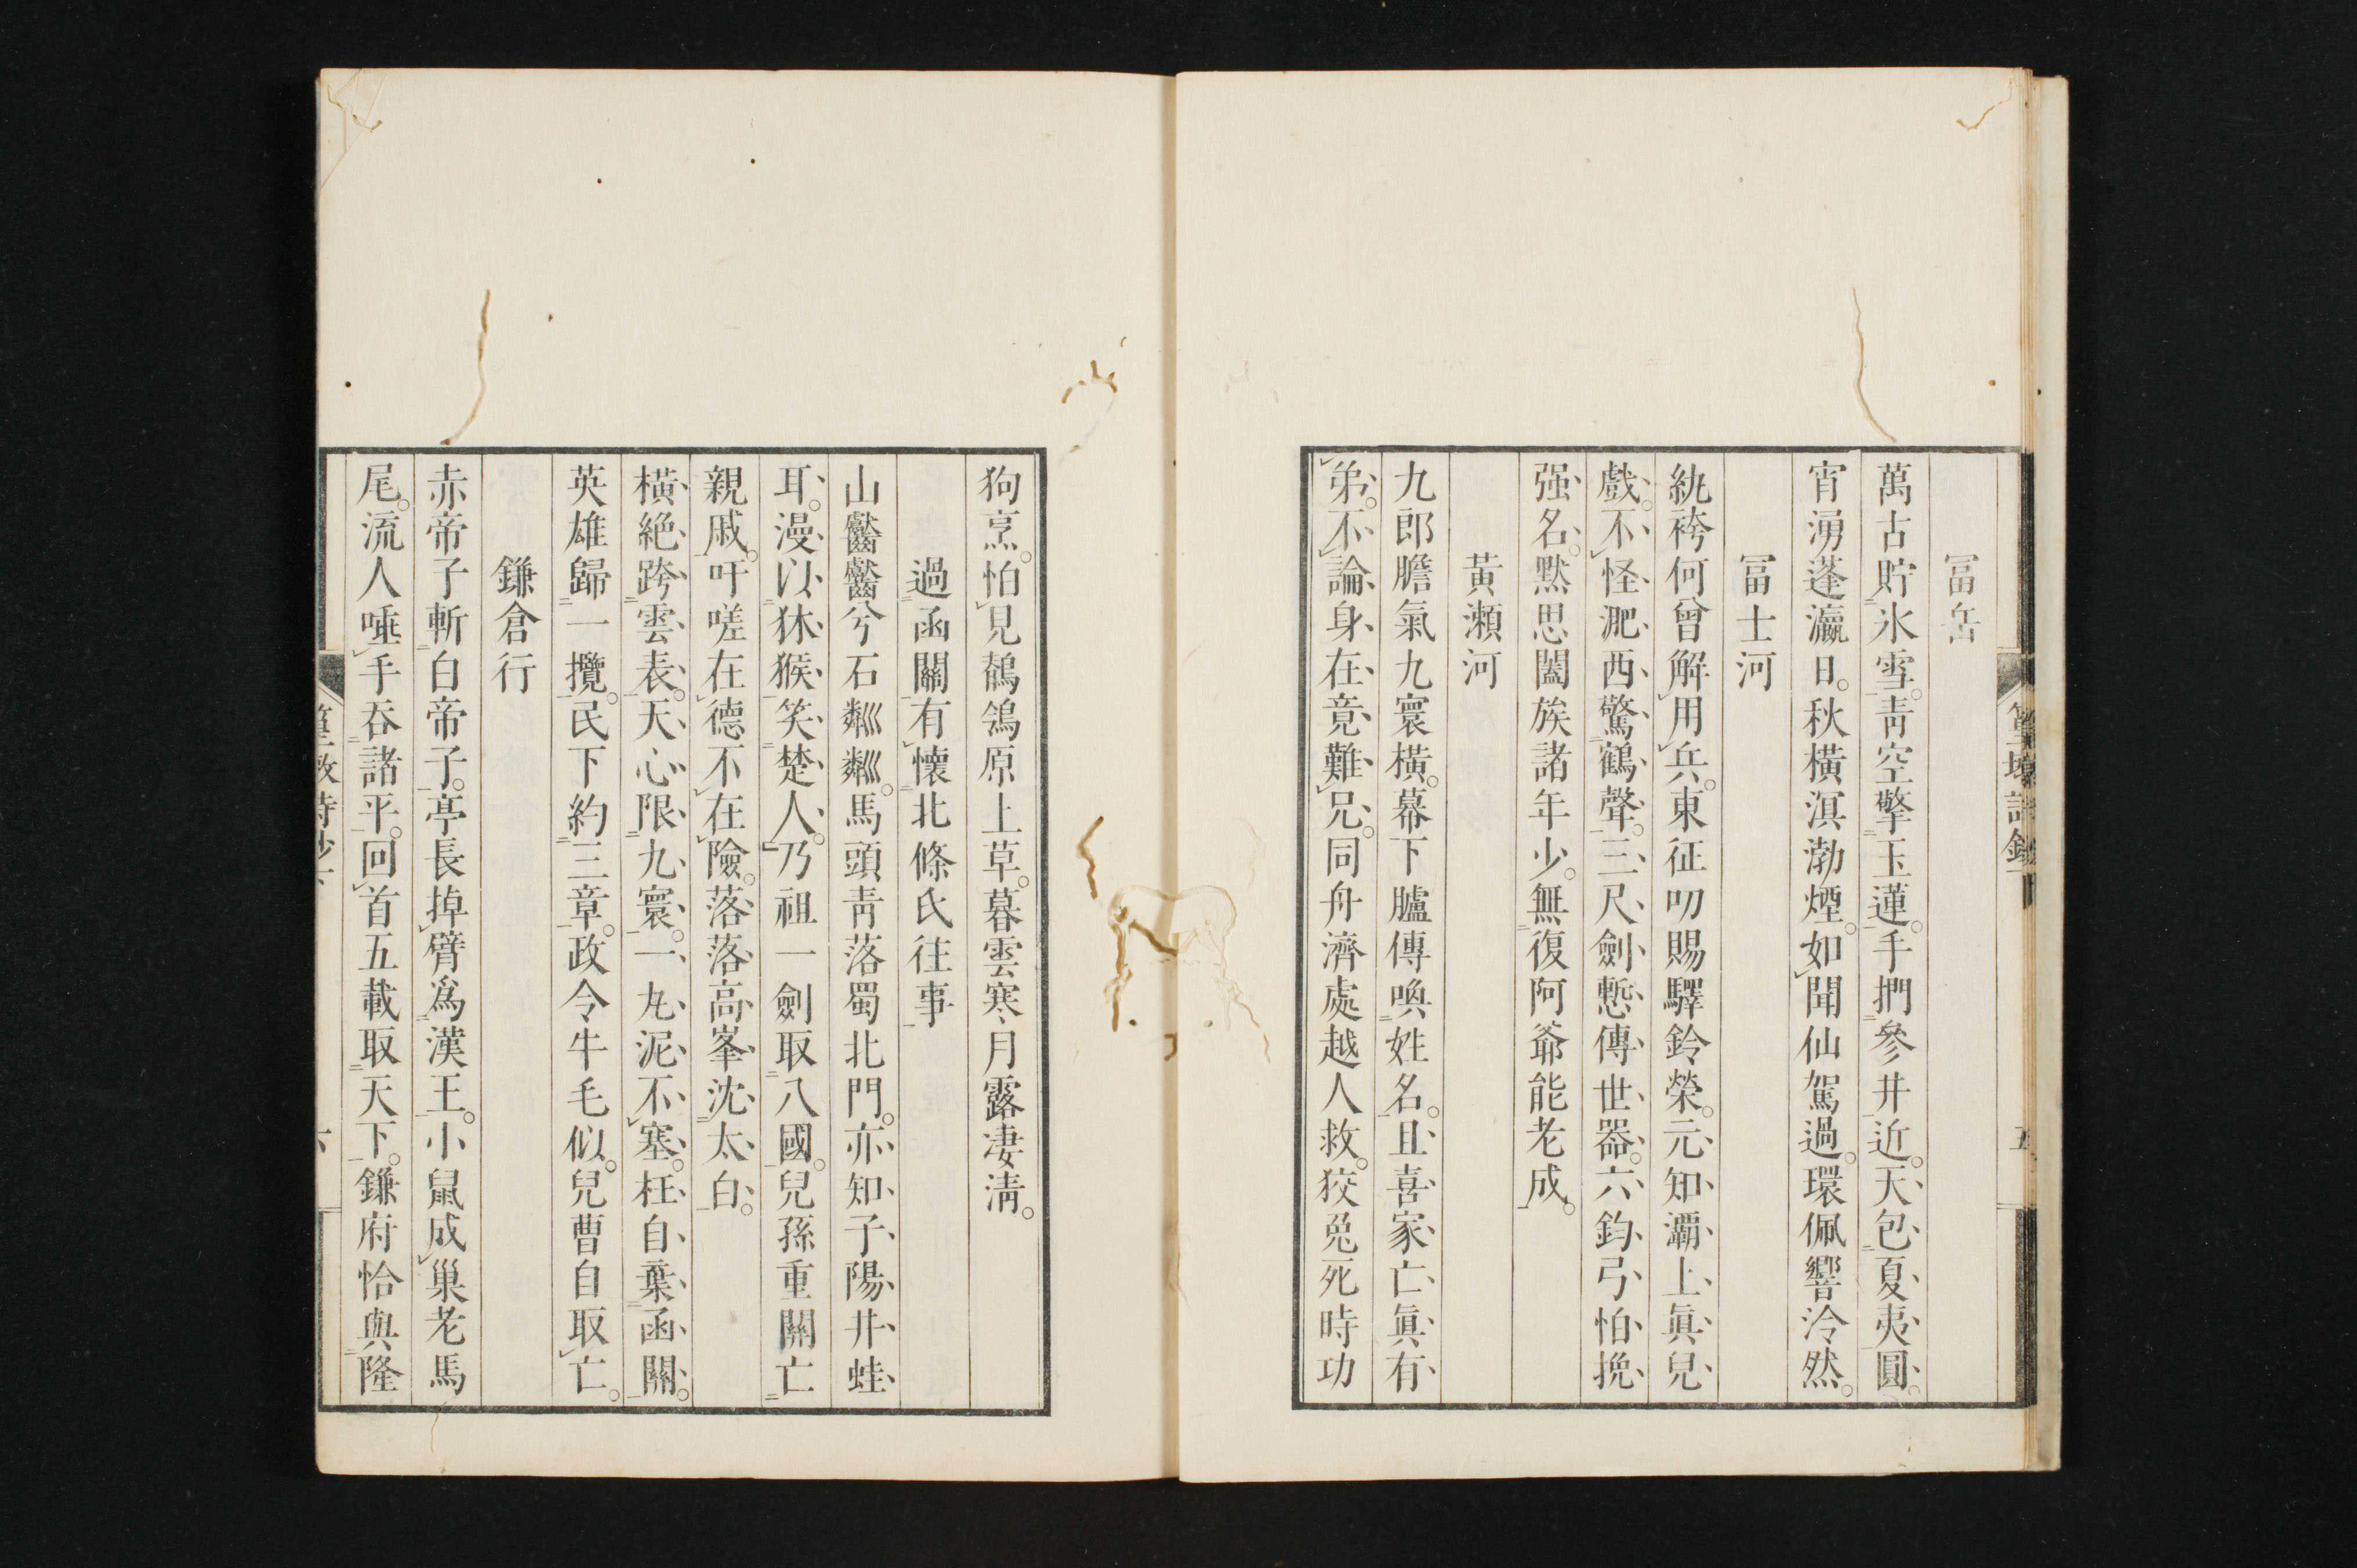 冨岳
萬古貯氷雪。靑空擎玉蓮。手捫參井近。天包夏夷圓。
宵湧蓬瀛日。秋橫溟渤煙。如聞仙駕過。環佩響泠然。
冨士河
紈袴何曾解用兵。東征叨賜驛鈴榮。元知灞上眞兒
戲。不怪淝西驚鶴聲。三尺劍慙傳世器。六鈞弓怕挽
强名。默思闔族諸年少。無復阿爺能老成。
黃瀬河
九郎膽氣九寰橫。幕下臚傳喚姓名。且喜家亡眞有
弟。不論身在竟難兄。同舟濟處越人救。狡兎死時功
五
狗烹。怕見鶺鴒原上草。暮雲寒月露凄淸。
過函關有懷北條氏往事
山齾齾兮石粼粼。馬頭靑落蜀北門。亦知子陽井蛙
耳。漫以沐猴笑楚人。乃祖一劍取八國。兒孫重關亡
親戚。吁嗟在德不在險。落落高峯沈太白。
橫絶跨雲表。天心限九寰。一丸泥不塞。枉自棄函關。
英雄歸一攬。民下約三章。政令牛毛似。兒曹自取亡。
鎌倉行
赤帝子斬白帝子。亭長掉臂爲漢王。小鼠成巢老馬
尾。流人唾手呑諸平。回首五載取天下。鎌府恰與隆